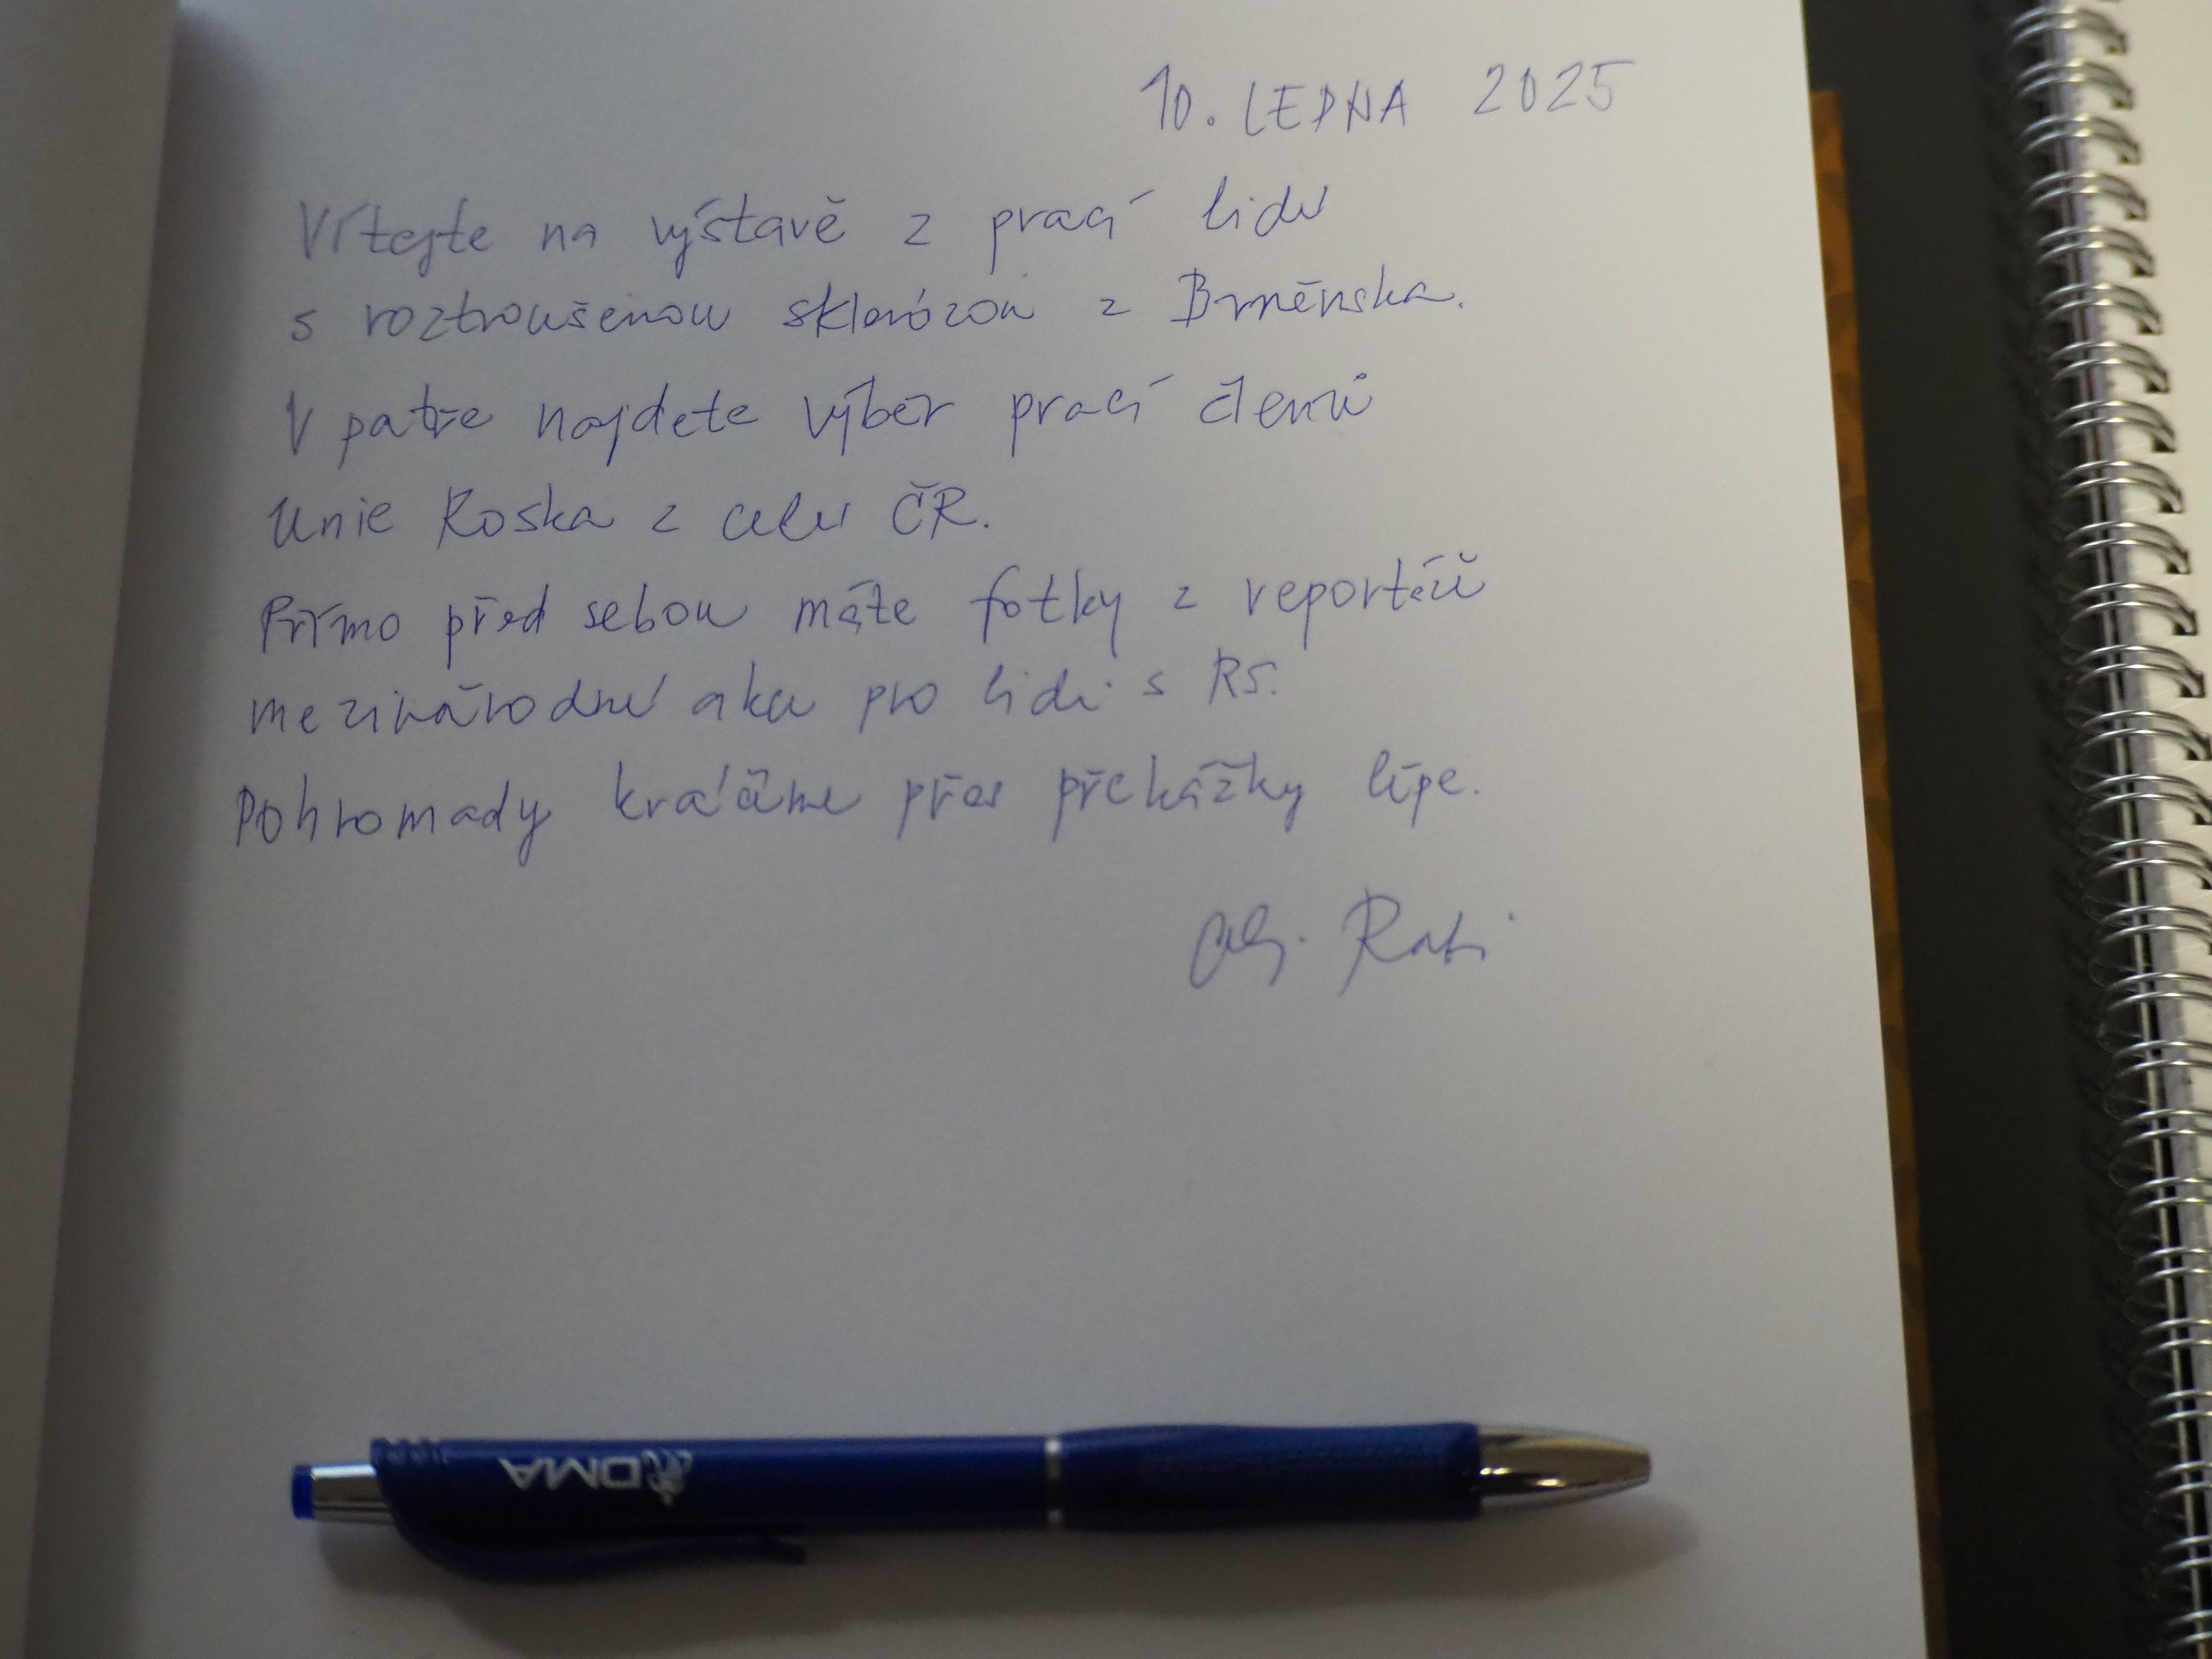 10. LEDNA 2025
Vítejte na výstavě z prací lidí
s roztroušenou sklerózou z Brněnska.
V patře najdete výběr prací členů
Unie Roska z celé ČR.
Přímo před sebou máte fotky z reportáží
mezinárodní akce pro lidi s RS.
Pohromady kráčíme přes překážky lépe.
DMA